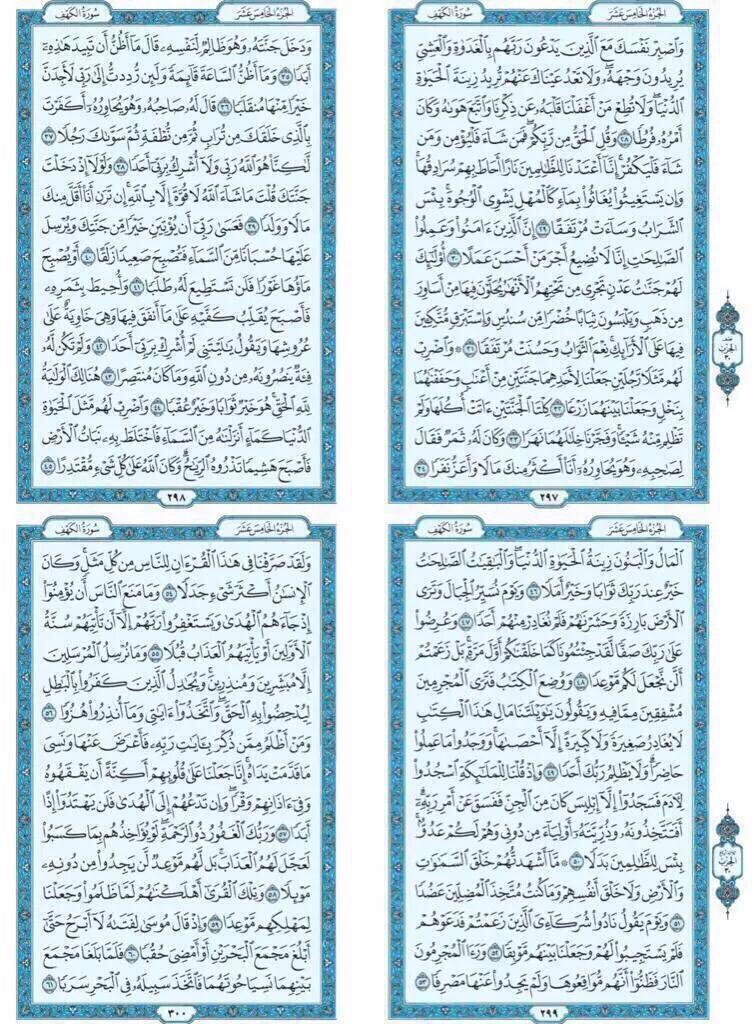 الجزء الخامس عشر
سورة الكهف
واصبر نفسك مع الذين يدعون ربهم بالغدوٰة والعشي
يريدون وجهه ولا تعد عيناك عنهم تريد زينة الحيوٰة
الدنيا ولا تطع من أغفلنا قلبه عن ذكرنا واتبع هوىٰه وكان
أمره فرطا ٢٨ وقل الحق من ربكم فمن شاء فليؤمن ومن
شاء فليكفر إنا أعتدنا للظٰلمين نارا أحاط بهم سرادقها
وإن يستغيثوا يغاثوا بماء كالمهل يشوي الوجوه بئس
الشراب وساءت مرتفقا ٢٩ إن الذين ءامنوا وعملوا
الصٰلحٰت إنا لا نضيع أجر من أحسن عملا ٣٠ أولٰئك
لهم جنٰت عدن تجري من تحتهم الأنهٰر يحلون فيها من أساور
من ذهب ويلبسون ثيابا خضرا من سندس وإستبرق متكـٔين
فيها على الأرائك نعم الثواب وحسنت مرتفقا ٣١ ۞ واضرب
لهم مثلا رجلين جعلنا لأحدهما جنتين من أعنٰب وحففنٰهما
بنخل وجعلنا بينهما زرعا ٣٢ كلتا الجنتين ءاتت أكلها ولم
تظلم منه شيـٔا وفجرنا خلٰلهما نهرا ٣٣ وكان له ثمر فقال
لصٰحبه وهو يحاوره أنا أكثر منك مالا وأعز نفرا ٣٤
٢٩٧
الجزء الخامس عشر
سورة الكهف
ودخل جنته وهو ظالم لنفسه قال ما أظن أن تبيد هٰذه
أبدا ٣٥ وما أظن الساعة قائمة ولئن رددت إلىٰ ربي لأجدن
خيرا منها منقلبا ٣٦ قال له صاحبه وهو يحاوره أكفرت
بالذي خلقك من تراب ثم من نطفة ثم سوىٰك رجلا ٣٧
لٰكنا هو الله ربي ولا أشرك بربي أحدا ٣٨ ولولا إذ دخلت
جنتك قلت ما شاء الله لا قوة إلا بالله إن ترن أنا أقل منك
مالا وولدا ٣٩ فعسىٰ ربي أن يؤتين خيرا من جنتك ويرسل
عليها حسبانا من السماء فتصبح صعيدا زلقا ٤٠ أو يصبح
ماؤها غورا فلن تستطيع له طلبا ٤١ وأحيط بثمره
فأصبح يقلب كفيه علىٰ ما أنفق فيها وهي خاوية علىٰ
عروشها ويقول يٰليتني لم أشرك بربي أحدا ٤٢ ولم تكن له
فئة ينصرونه من دون الله وما كان منتصرا ٤٣ هنالك الولٰية
لله الحق هو خير ثوابا وخير عقبا ٤٤ واضرب لهم مثل الحيوٰة
الدنيا كماء أنزلنٰه من السماء فاختلط به نبات الأرض
فأصبح هشيما تذروه الريٰح وكان الله علىٰ كل شيء مقتدرا ٤٥
٢٩٨
الجزء الخامس عشر
سورة الكهف
المال والبنون زينة الحيوٰة الدنيا والبٰقيٰت الصٰلحٰت
خير عند ربك ثوابا وخير أملا ٤٦ ويوم نسير الجبال وترى
الأرض بارزة وحشرنٰهم فلم نغادر منهم أحدا ٤٧ وعرضوا
علىٰ ربك صفا لقد جئتمونا كما خلقنٰكم أول مرة بل زعمتم
ألن نجعل لكم موعدا ٤٨ ووضع الكتٰب فترى المجرمين
مشفقين مما فيه ويقولون يٰويلتنا مال هٰذا الكتٰب
لا يغادر صغيرة ولا كبيرة إلا أحصىٰها ووجدوا ما عملوا
حاضرا ولا يظلم ربك أحدا ٤٩ وإذ قلنا للملٰئكة اسجدوا
لءادم فسجدوا إلا إبليس كان من الجن ففسق عن أمر ربه
أفتتخذونه وذريته أولياء من دوني وهم لكم عدو
بئس للظٰلمين بدلا ٥٠ ۞ ما أشهدتهم خلق السمٰوٰت
والأرض ولا خلق أنفسهم وما كنت متخذ المضلين عضدا
٥١ ويوم يقول نادوا شركاءي الذين زعمتم فدعوهم
فلم يستجيبوا لهم وجعلنا بينهم موبقا ٥٢ ورءا المجرمون
النار فظنوا أنهم مواقعوها ولم يجدوا عنها مصرفا ٥٣
٢٩٩
الجزء الخامس عشر
سورة الكهف
ولقد صرفنا في هٰذا القرءان للناس من كل مثل وكان
الإنسٰن أكثر شيء جدلا ٥٤ وما منع الناس أن يؤمنوا
إذ جاءهم الهدىٰ ويستغفروا ربهم إلا أن تأتيهم سنة
الأولين أو يأتيهم العذاب قبلا ٥٥ وما نرسل المرسلين
إلا مبشرين ومنذرين ويجٰدل الذين كفروا بالبٰطل
ليدحضوا به الحق واتخذوا ءايٰتي وما أنذروا هزوا ٥٦
ومن أظلم ممن ذكر بـٔايٰت ربه فأعرض عنها ونسي
ما قدمت يداه إنا جعلنا علىٰ قلوبهم أكنة أن يفقهوه
وفي ءاذانهم وقرا وإن تدعهم إلى الهدىٰ فلن يهتدوا إذا
أبدا ٥٧ وربك الغفور ذو الرحمة لو يؤاخذهم بما كسبوا
لعجل لهم العذاب بل لهم موعد لن يجدوا من دونه
موئلا ٥٨ وتلك القرىٰ أهلكنٰهم لما ظلموا وجعلنا
لمهلكهم موعدا ٥٩ وإذ قال موسىٰ لفتىٰه لا أبرح حتىٰ
أبلغ مجمع البحرين أو أمضي حقبا ٦٠ فلما بلغا مجمع
بينهما نسيا حوتهما فاتخذ سبيله في البحر سربا ٦١
٣٠٠